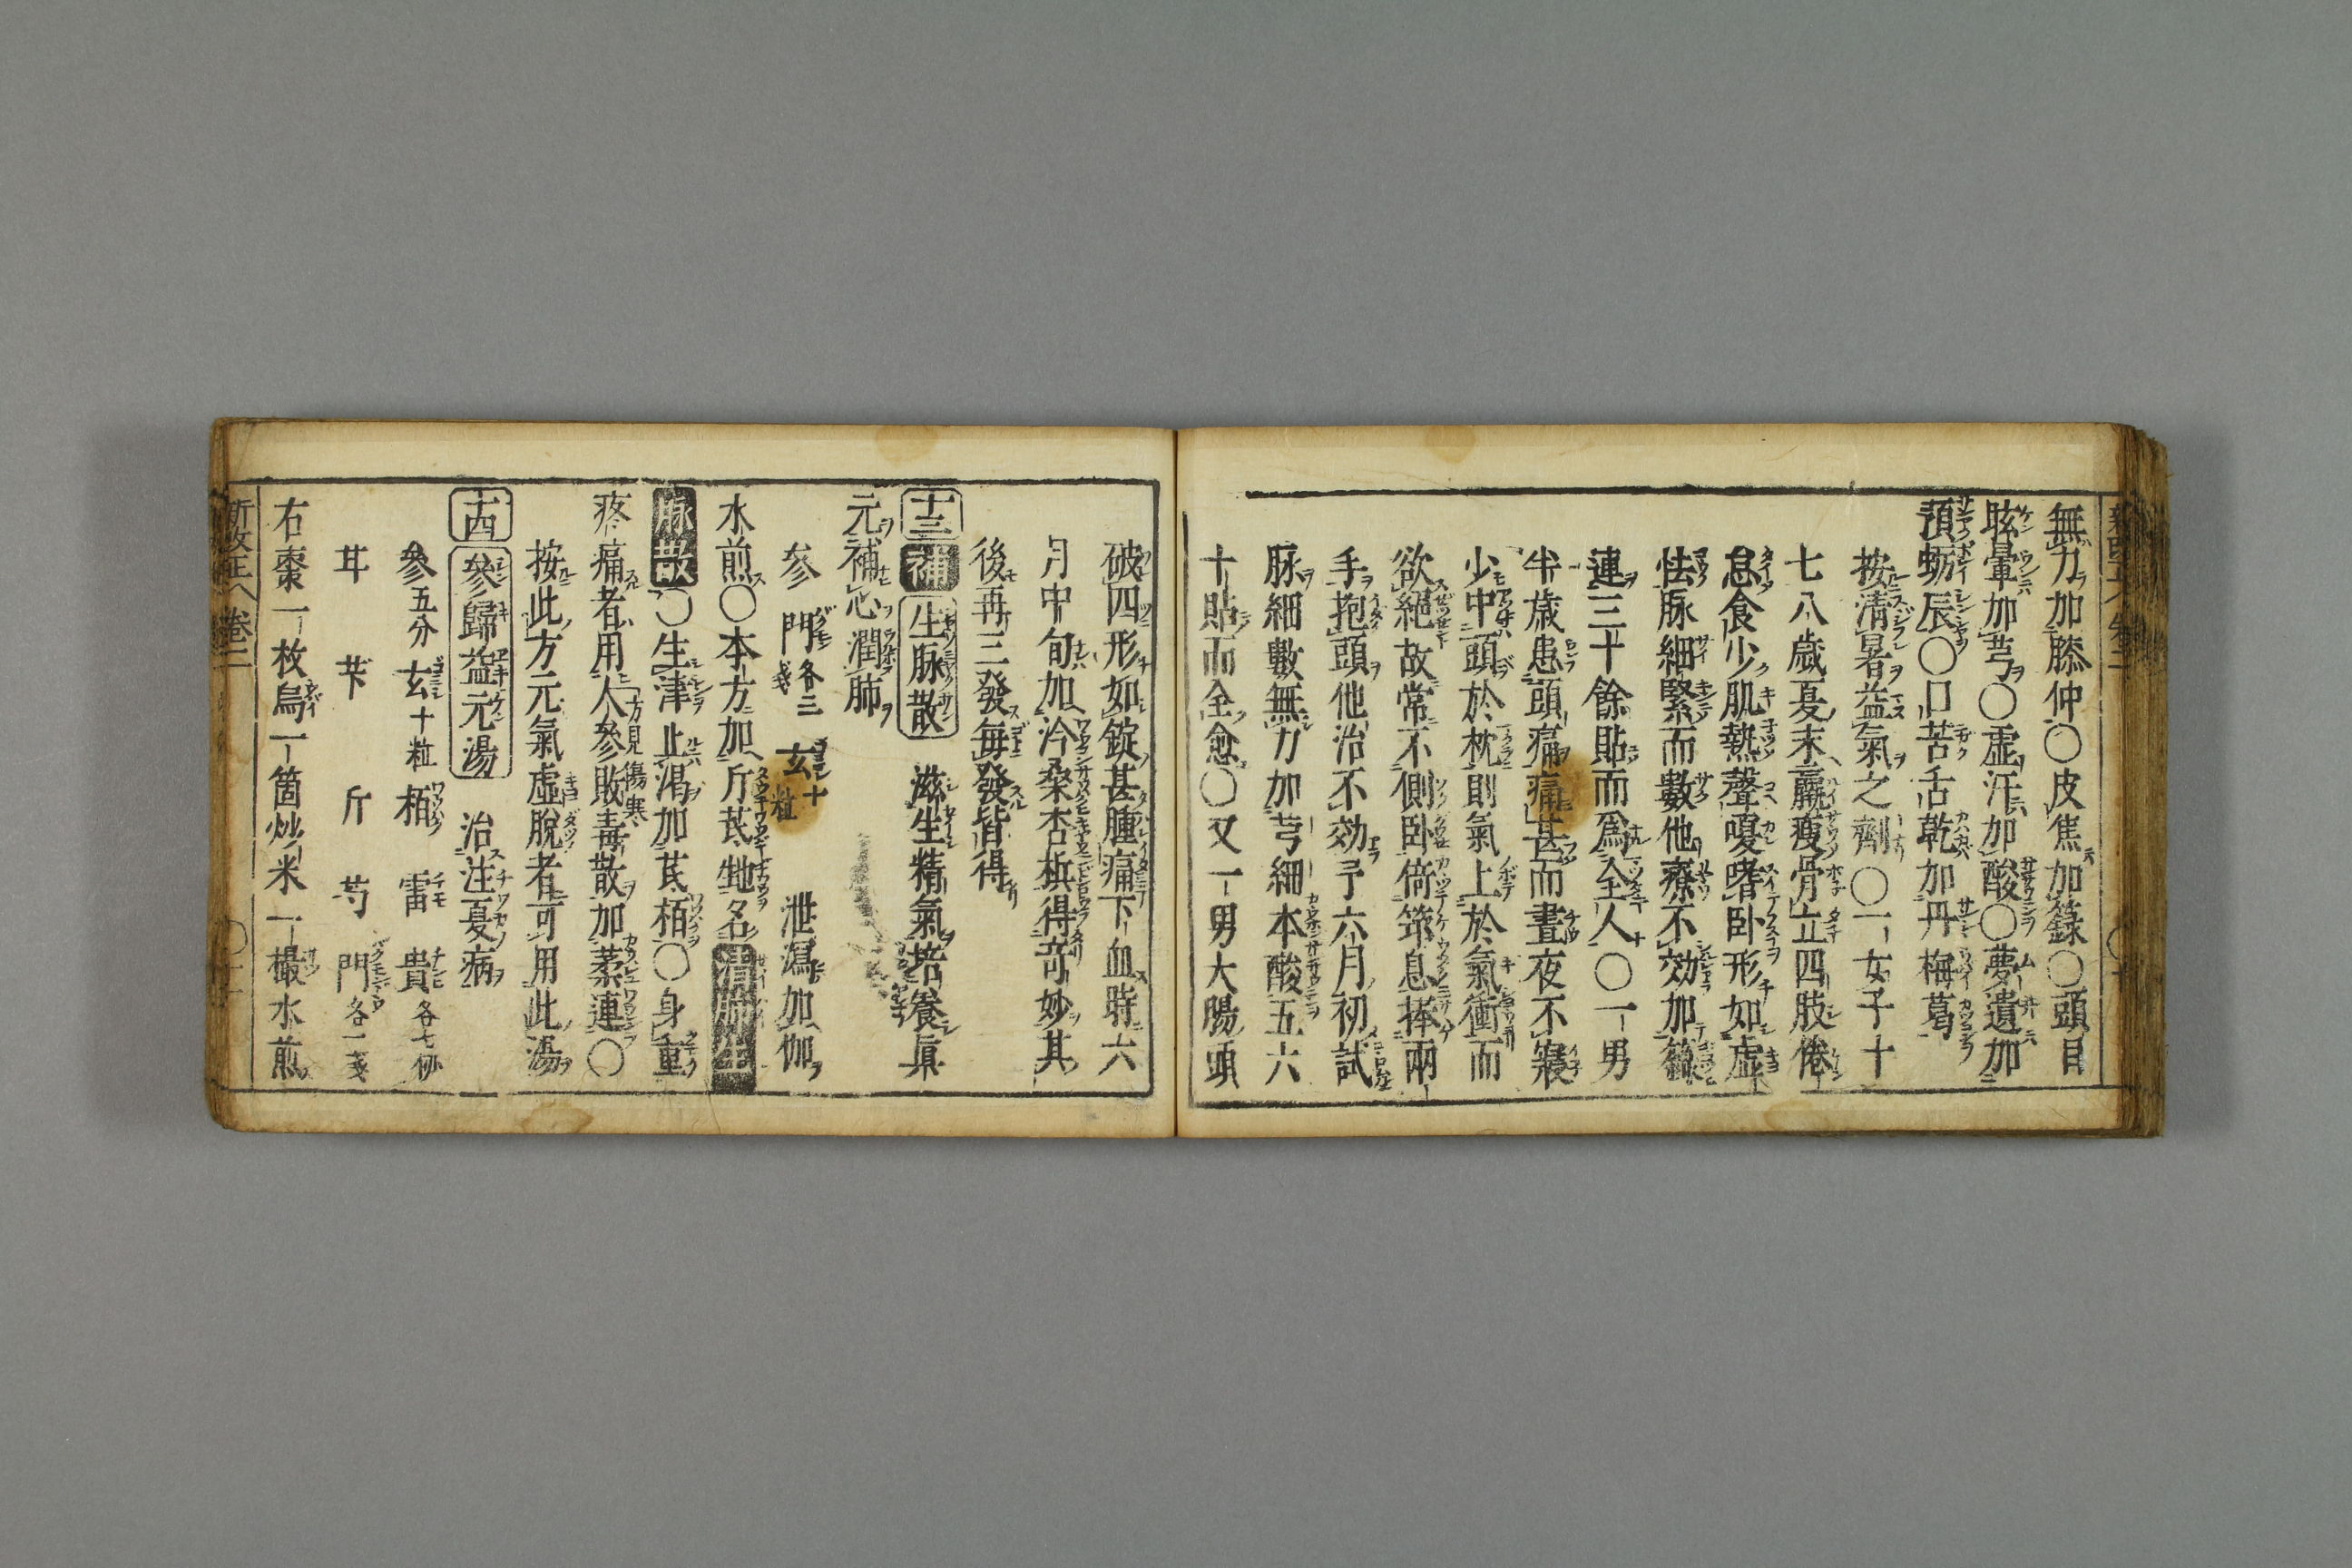 無力加膝仲〇皮焦加籙〇頭目
眩暈加芎〇虛汗加酸〇夢遺加
預蛎辰〇口苦舌乾加丹梅葛
按清暑益氣之劑〇一女子十
七八歳夏末羸瘦骨立四肢倦
怠食少肌熱聲嗄嗜卧形如虛
怯脉細緊而數他療不効加
連三十餘貼而爲全人〇一男
半歳患頭痛痛甚而晝夜不寢
少中頭於枕則氣上於氣衝而
欲絕故常不側卧倚笻息捧兩
手抱頭他治不効予六月初試
脉細數無力加芎細本酸五六
十貼而全愈〇又一男大腸頭
破四形如錠甚腫痛下血時六
月中旬加冷桑杏梹得竒妙其
後再三發每發皆得
十三 補 生脉散 滋生精氣培養眞
元補心潤肺
参 門各二戔 玄十粒 泄瀉加伽
水煎〇本方加斤芪地名清肺生
脉散〇生津止渴加芪栢〇身重
疼痛者用人參敗毒散加蒸連〇
方見傷寒
按此方元氣虛脫者可用此湯
十四 參歸益元湯 治注夏病
參五分 玄十粒 栢 雷 貴各七分
耳 芐 斤 芍 門各一戔
右棗一枚烏一箇炒米一撮水煎
新改正 卷二